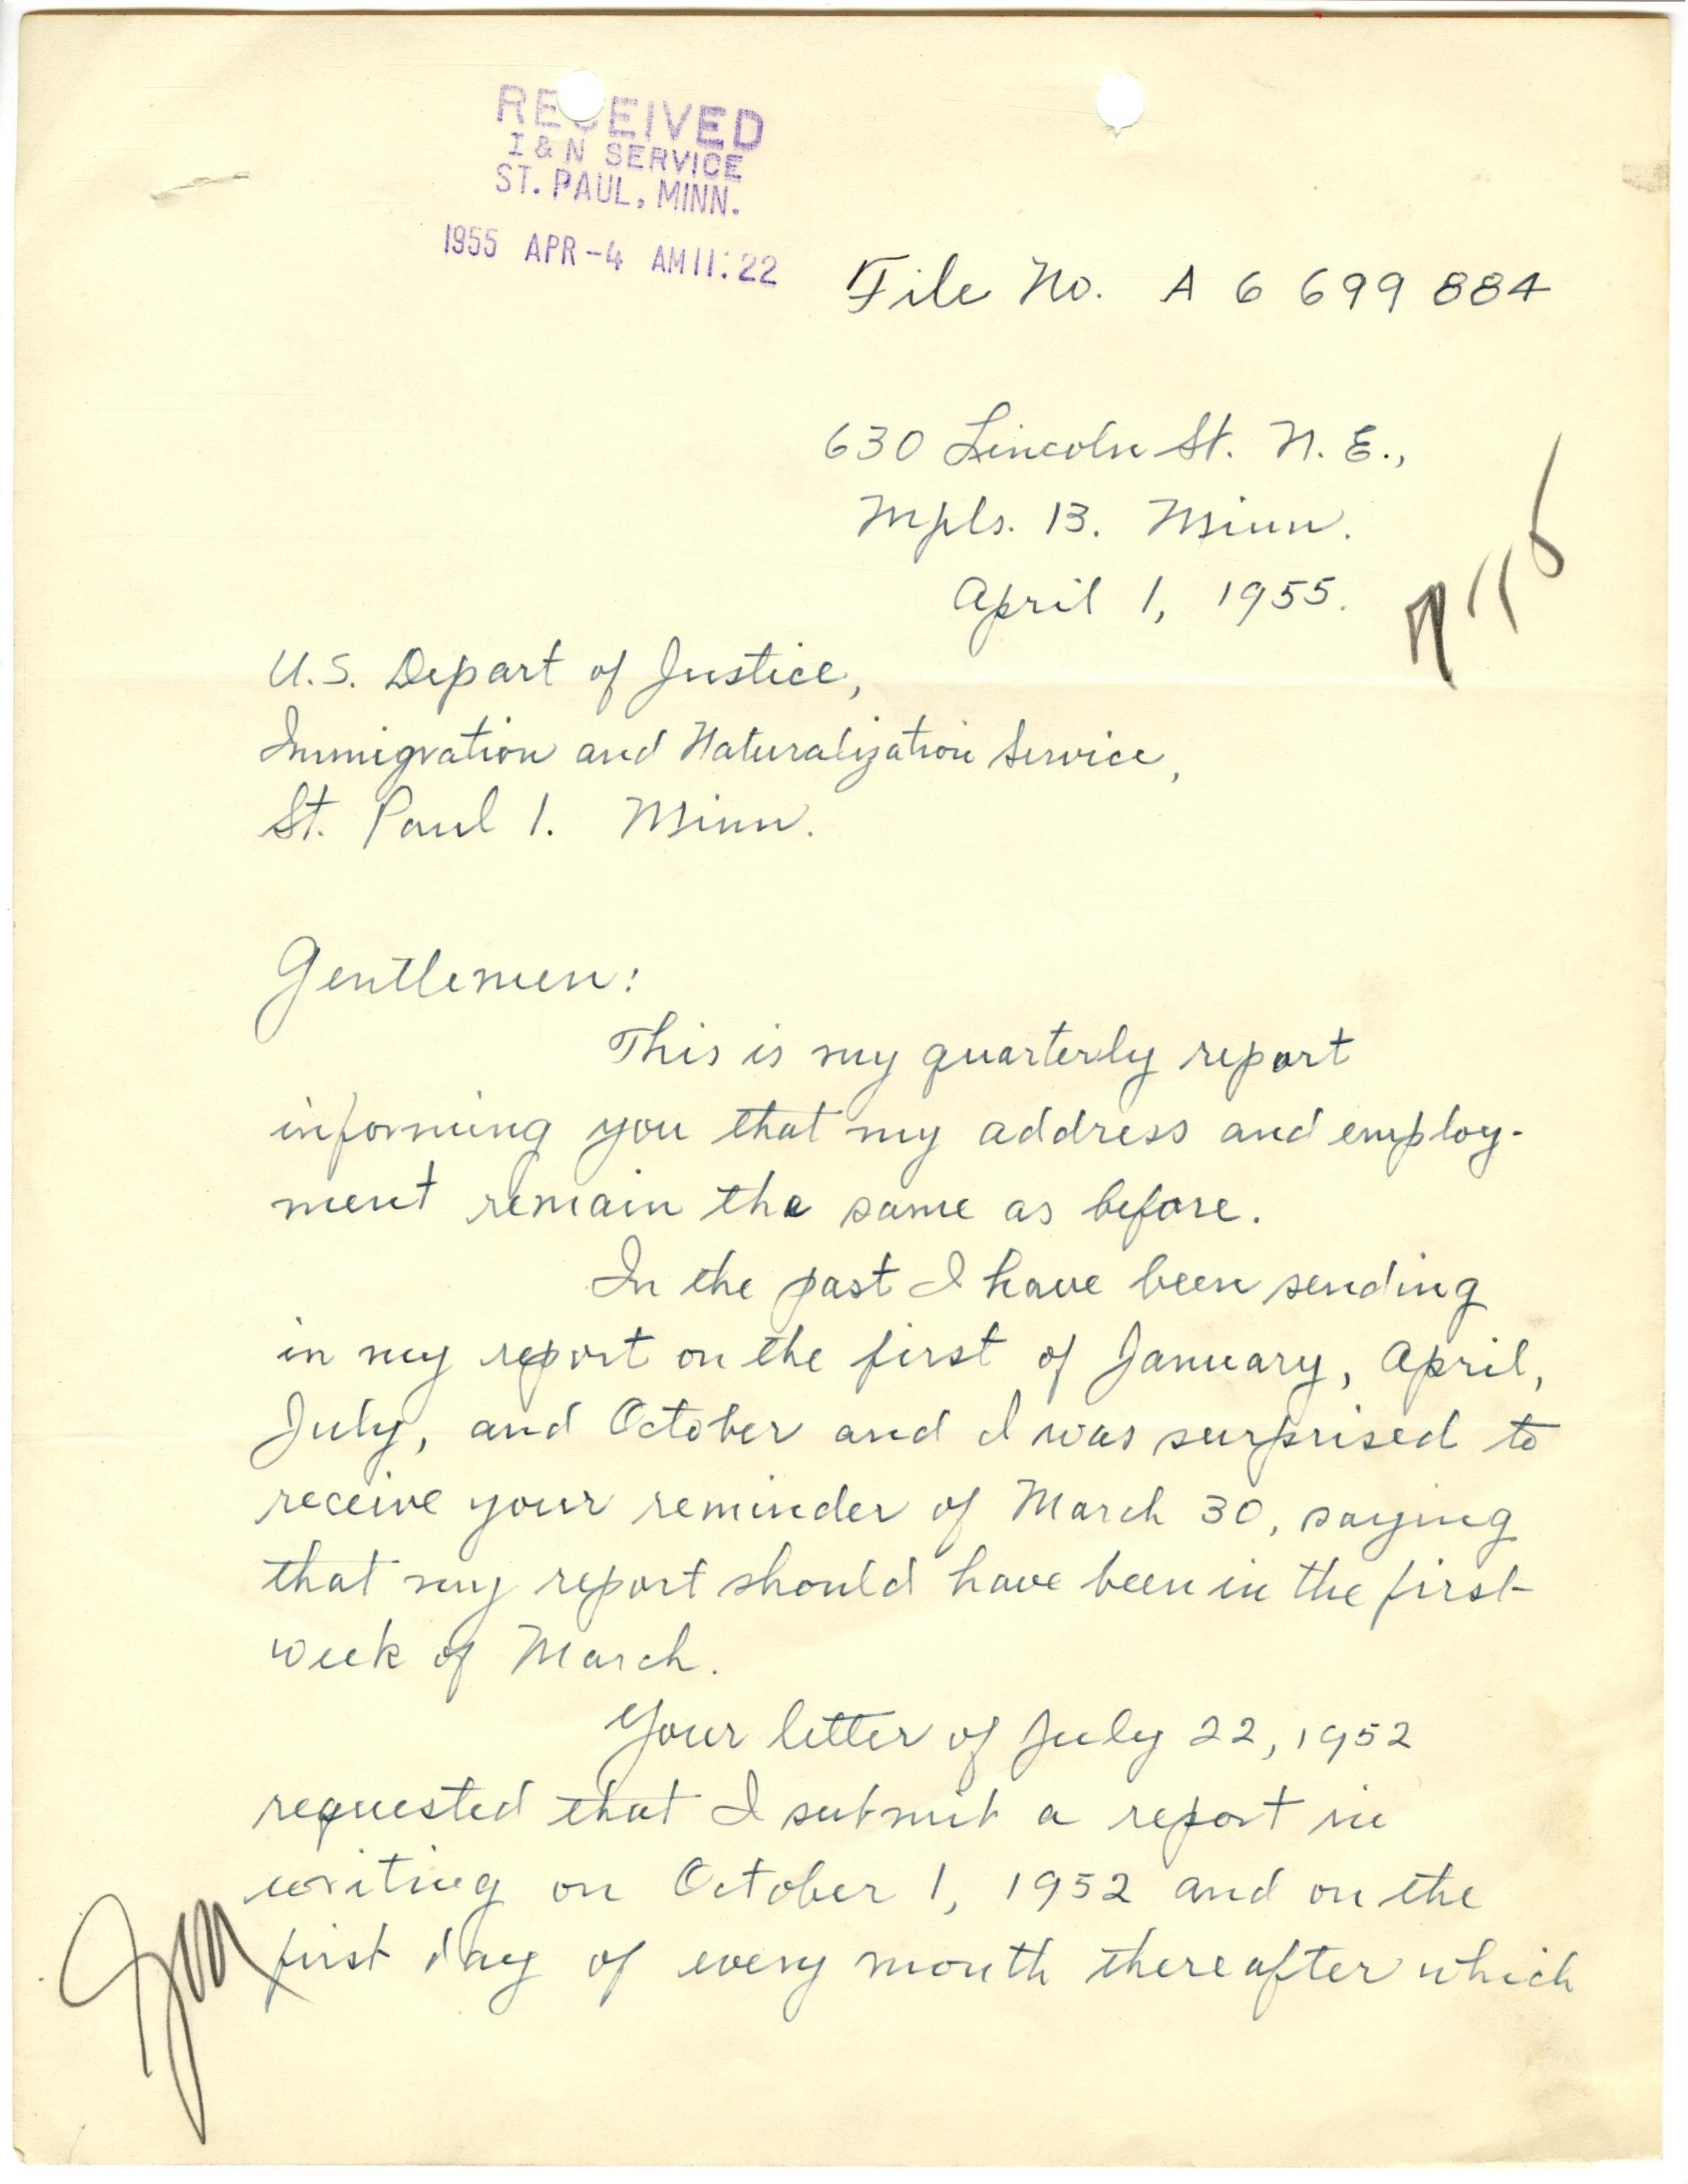 RECEIVED
I & N SERVICE
ST. PAUL, MINN.
1955 APR -4 AM 11:22
File No. A 6 699 884
630 Lincoln St. N. E.,
Mpls. 13. Minn.
April 1, 1955.
U.S. Depart of Justice,
Immigration and Naturalization Service,
St. Paul 1. Minn.
Gentlemen:
This is my quarterly report
informing you that my address and employ-
ment remain the same as before.
In the past I have been sending
in my report on the first of January, April,
July, and October and I was surprised to
receive your reminder of March 30, saying
that my report should have been in the first
week of March.
Your letter of July 22, 1952
requested that I submit a report in
writing on October 1, 1952 and on the
first day of every month thereafter which